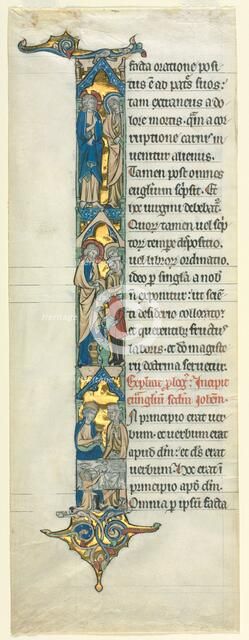 facta oratione posi
tus ē ad patrēs suos:
tam extraneus a do
lore mortis. quā a cor
ruptione carnis in
uenitur alienus.
Tamen post omnes
euglium scpsit. Et
hoc uirgini debebat.
Quor tamen uel scp
tor tempr dispositio.
uel librorr ordinatio.
ideo p singla a nob
n exponitur: ut sciē
di desiderio collocato.
et querentibr fructus
laboris. et do magiste
rij doctrina seruetur.
Explicit plogr. Incipit
euuglm scdm Iohem.
N principio erat uer
bum. et uerbum erat
apud dm. et ds erat
uerbum. hoc erat i
principio apd dm.
Omnia p ipsm facta